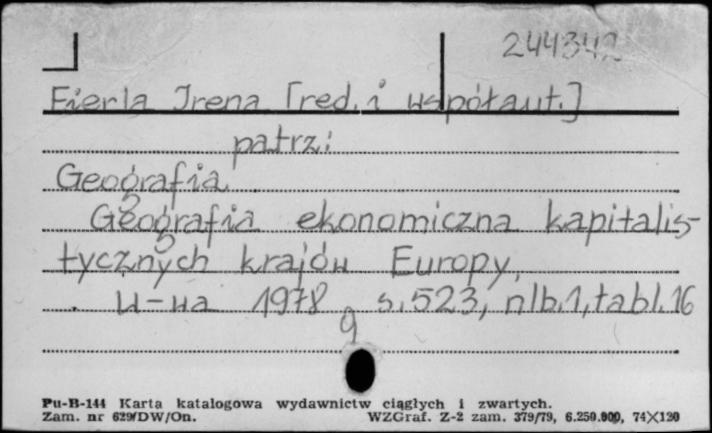 244342
Fierla Irena [red. i współaut.]
patrz:
Geografia
Geografia ekonomiczna kapitalis-
tycznych krajów Europy,
W-wa 1978 s. 523, nlb. 1, tabl. 16
g
Pu-B-144 Karta katalogowa wydawnictw ciągłych i zwartych.
Zam. nr 629/DW/On. WZGraf. Z-2 zam. 379/79, 6.250.000, 74×120